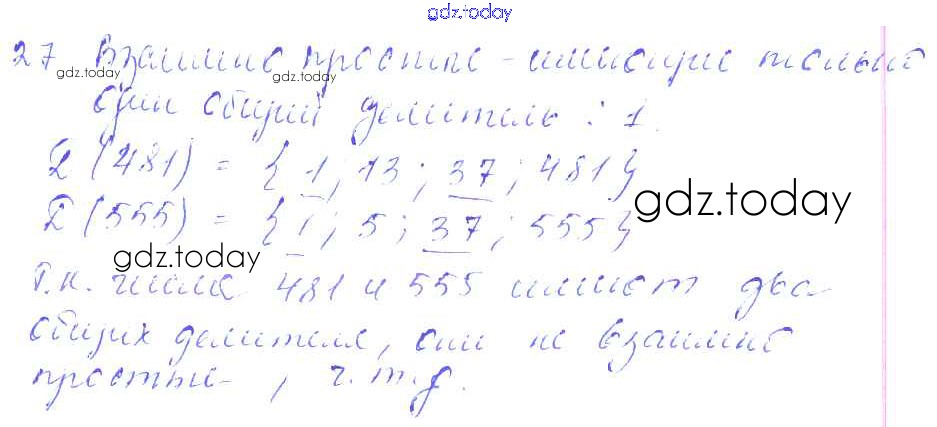 gdz.today
27 Взаимно простые - имеющие только
gdz.today gdz.today
один общий делитель : 1.
D (481) = { 1 ; 13 ; 37 ; 481 }
gdz.today
D (555) = { 1 ; 5 ; 37 ; 555 }
gdz.today
Т.к. числа 481 и 555 имеют два
общих делителя, они не взаимно
простые , ч.т.д.